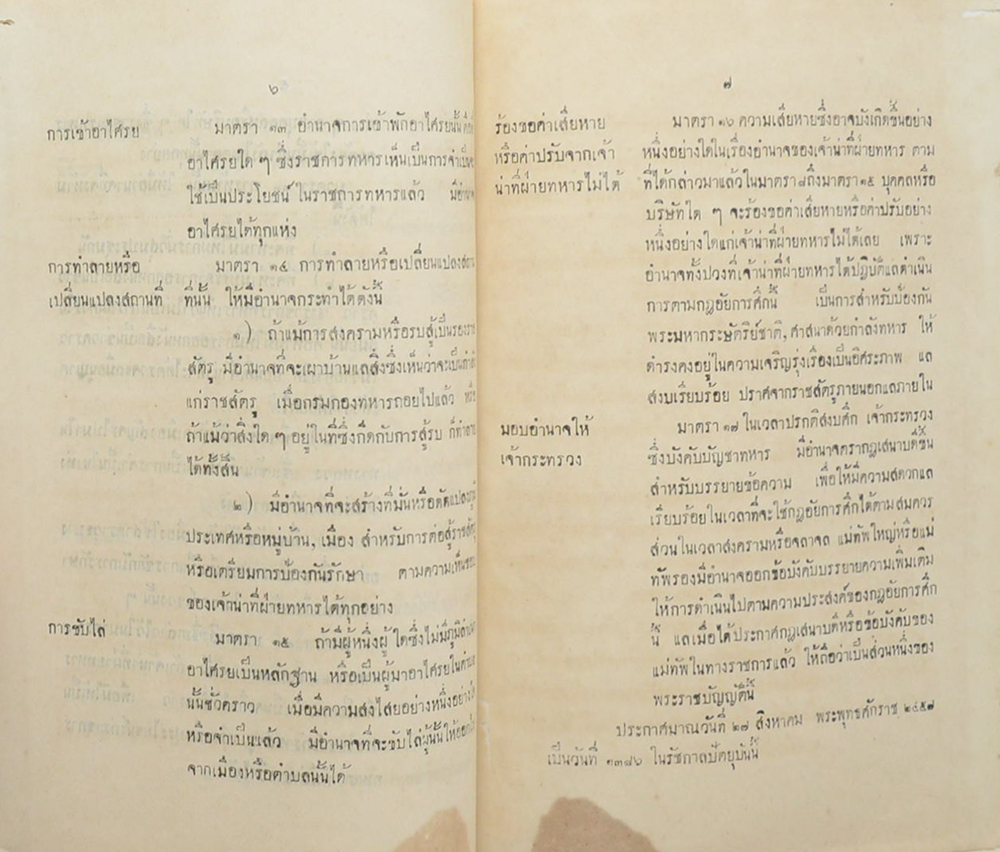 ๖
การเข้าอาไศรย มาตรา ๑๓ อำนาจการเข้าพักอาไศรยนั้น
อาไศรยใด ๆ ซึ่งราชการทหารเห็นเป็นการจำเป็น
ใช้เป็นประโยชน์ ในราชการทหารแล้ว มีอำนาจ
อาไศรยได้ทุกแห่ง
การทำลายหรือ มาตรา ๑๔ การทำลายหรือเปลี่ยนแปลงสถาน
เปลี่ยนแปลงสถานที่ ที่นั้น ให้มีอำนาจกระทำได้ดังนี้
๑) ถ้าแม้การสงครามหรือรบสู้เป็นรองราช
สัตรู มีอำนาจที่จะเผาบ้านแลสิ่งซึ่งเห็นว่าจะเป็นกำลัง
แก่ราชสัตรู เมื่อกรมกองทหารถอยไปแล้ว หรือ
ถ้าแม้ว่าสิ่งใด ๆ อยู่ในที่ซึ่งกีดกับการสู้รบ ก็ทำลาย
ได้ทั้งสิ้น
๒) มีอำนาจที่จะสร้างที่มั่นหรือดัดแปลงภูมิ
ประเทศหรือหมู่บ้าน, เมือง สำหรับการต่อสู้ราชสัตรู
หรือเตรียมการป้องกันรักษา ตามความเห็นชอบ
ของเจ้าน่าที่ฝ่ายทหารได้ทุกอย่าง
การขับไล่ มาตรา ๑๕ ถ้ามีผู้หนึ่งผู้ใดซึ่งไม่มีภูมิลำเนา
อาไศรยเป็นหลักฐาน หรือเป็นผู้มาอาไศรยในตำบล
นั้นชั่วคราว เมื่อมีความสงไสยอย่างหนึ่งอย่างใด
หรือจำเป็นแล้ว มีอำนาจที่จะขับไล่ผู้นั้นให้ออก
จากเมืองหรือตำบลนั้นได้
๗
ร้องขอค่าเสียหาย มาตรา ๑๖ ความเสียหายซึ่งอาจบังเกิดขึ้นอย่าง
หรือค่าปรับจากเจ้า หนึ่งอย่างใดในเรื่องอำนาจของเจ้าน่าที่ฝ่ายทหาร ตาม
น่าที่ฝ่ายทหารไม่ได้ ที่ได้กล่าวมาแล้วในมาตรา ๘ ถึงมาตรา ๑๕ บุคคลหรือ
บริษัทใด ๆ จะร้องขอค่าเสียหายหรือค่าปรับอย่าง
หนึ่งอย่างใดแก่เจ้าน่าที่ฝ่ายทหารไม่ได้เลย เพราะ
อำนาจทั้งปวงที่เจ้าน่าที่ฝ่ายทหารได้ปฏิบัติแลดำเนิน
การตามกฎอัยการศึกนี้ เป็นการสำหรับป้องกัน
พระมหากระษัตริย์ชาติ, ศาสนาด้วยกำลังทหาร ให้
ดำรงคงอยู่ในความเจริญรุ่งเรืองเป็นอิศระภาพ แล
สงบเรียบร้อย ปราศจากราชสัตรูภายนอกแลภายใน
มอบอำนาจให้ มาตรา ๑๗ ในเวลาปรกติสงบศึก เจ้ากระทรวง
เจ้ากระทรวง ซึ่งบังคับบัญชาทหาร มีอำนาจตรากฎเสนาบดีขึ้น
สำหรับบรรยายข้อความ เพื่อให้มีความสดวกแล
เรียบร้อยในเวลาที่จะใช้กฎอัยการศึกได้ตามสมควร
ส่วนในเวลาสงครามหรือจลาจล แม่ทัพใหญ่หรือแม่
ทัพรองมีอำนาจออกข้อบังคับบรรยายความเพิ่มเติม
ให้การดำเนินไปตามความประสงค์ของกฎอัยการศึก
นี้ แลเมื่อได้ประกาศกฎเสนาบดีหรือข้อบังคับของ
แม่ทัพในทางราชการแล้ว ให้ถือว่าเป็นส่วนหนึ่งของ
พระราชบัญญัตินี้
ประกาศมาณวันที่ ๒๗ สิงหาคม พระพุทธศักราช ๒๔๕๗
เป็นวันที่ ๑๓๘๖ ในรัชกาลปัตยุบันนี้